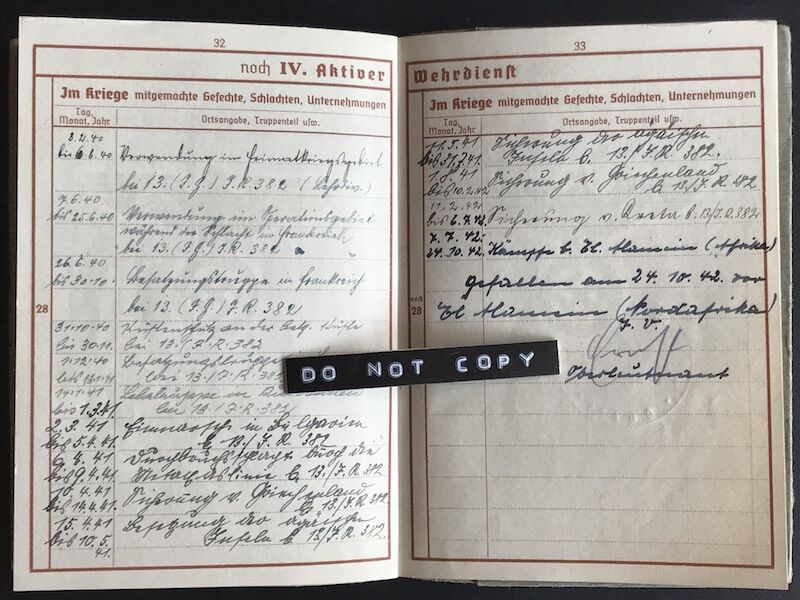 32
noch IV. Aktiver
Im Kriege mitgemachte Gefechte, Schlachten, Unternehmungen
Tag, Monat, Jahr
Ortsangabe, Truppenteil usw.
bis 6.6.40 Verwendung im Heimatkriegsgebiet
bei 13.(I.G.) I.R. 382
7.6.40
bis 25.6.40 Verwendung im Operationsgebiet
während der Schlacht in Frankreich
bei 13.(I.G.) I.R. 382
26.6.40
bis 30.10. Besatzungstruppe in Frankreich
28
bei 13.(I.G.) I.R. 382
31.10.40 Küstenschutz an der Küste
bis 30.11. bei 13./I.R. 382
1.12.40
bei 13./I.R. 382
14.1.41
bis 1.3.41. bei 13./I.R. 382
2.3.41 Einmarsch in Bulgarien
bis 5.4.41. b. 13./I.R. 382
6.4.41 Durchbruchsschlacht durch die
bis 9.4.41. Metaxaslinie b. 13./I.R. 382
10.4.41 Sicherung v. Griechenland
bis 14.4.41. b. 13./I.R. 382.
15.4.41 Besetzung der ägäischen
bis 10.5. Inseln b. 13./I.R. 382.
41.
33
Wehrdienst
Im Kriege mitgemachte Gefechte, Schlachten, Unternehmungen
Tag, Monat, Jahr
Ortsangabe, Truppenteil usw.
11.5.41 Sicherung der ägäischen
Inseln b. 13./I.R. 382.
Sicherung v. Griechenland
b. 13./I.R. 382
bis 6.7.42. Sicherung v. Kreta b. 13/I.R. 382
7.7.42-
24.10.42. Kämpfe b. El Alamein (Afrika)
gefallen am 24.10.42. vor
noch 28
El Alamein (Nordafrika)
I. V.
Oberleutnant
DO NOT COPY